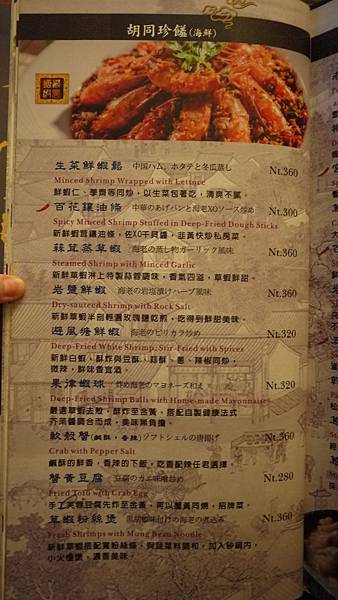 胡同珍饈(海鮮)
生菜鮮蝦鬆 中国ハム、ホタテと冬瓜蒸し Nt.360
Minced Shrimp Wrapped with Lettuce
鮮蝦仁、荸薺等同炒,以生菜包著吃,清爽不膩。
百花鑲油條 中華のあげパンと海老XOソース炒め Nt.300
Spicy Minced Shrimp Stuffed in Deep-Fried Dough Sticks
新鮮蝦茸鑲油條,佐XO干貝醬、韭黃快炒私房菜。
蒜茸蒸草蝦 海老の蒸し物ガーリック風味 Nt.360
Steamed Shrimp with Minced Garlic
新鮮草蝦淋上特製蒜蓉調味,香氣四溢,草蝦鮮甜。
岩鹽鮮蝦 海老の岩塩漬けハーブ風味 Nt.360
Dry-sauteed Shrimp with Rock Salt
新鮮草蝦半剖輕灑玫瑰鹽乾煎,吃得到鮮甜美味。
避風塘鮮蝦 海老のピリカラ炒め Nt.320
Deep-Fried White Shrimp, Stir-Fried with Spices
新鮮白蝦,酥炸與豆酥、蒜酥、蔥、辣椒同炒,
微辣,鮮味香宜酒。
果律蝦球 炸め海老のマヨネーズ和え Nt.320
Deep-Fried Shrimp Balls with Home-made Mayonnaise
嚴選草蝦去殼,酥炸至金黃,搭配自製健康法式
芥茉醬調合而成,美味無負擔。
軟殼蟹(鹹酥,香辣) ソフトシェルの唐揚げ Nt.360
Crab with Pepper Salt
鹹酥的鮮香,香辣的下飯,吃香配辣任君選擇
蟹黃豆腐 豆腐のカニ味噌炒め Nt.280
Fried Tofu with Crab Egg
手工芙蓉豆腐先炸至金黃,再以蟹黃同燒,招牌菜。
草蝦粉絲煲 黒胡椒味付けの海老の煮込み Nt.360
Fresh Shrimps with Mung Bean Noodle
新鮮草蝦搭配寬粉絲條,與蔬菜料調和,加入砂鍋內,
中火慢煨,濃香美味。